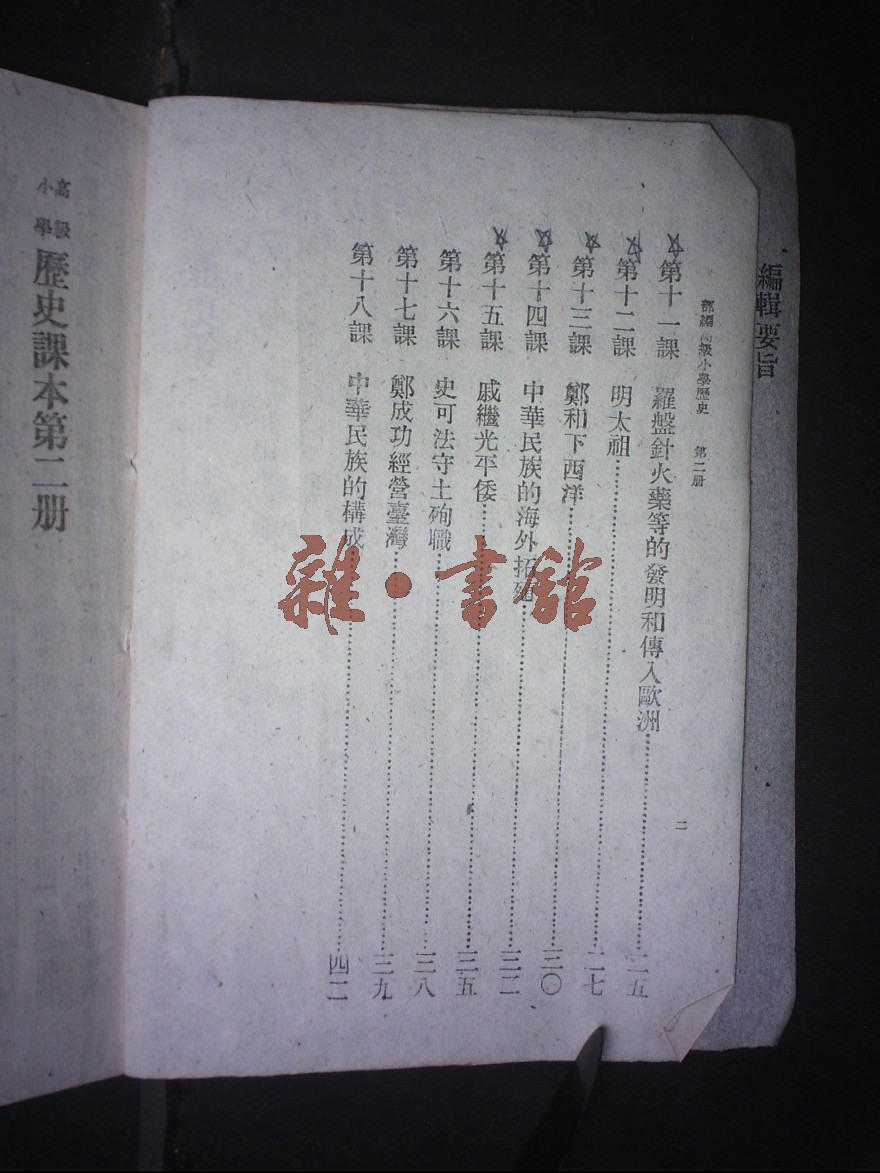 編輯要旨
部編高級小學歷史 第二册
二
第十一課 羅盤針火藥等的發明和傳入歐洲 二五
第十二課 明太祖 二七
第十三課 鄭和下西洋 三〇
第十四課 中華民族的海外拓殖 三二
第十五課 戚繼光平倭 三五
第十六課 史可法守土殉職 三八
第十七課 鄭成功經營臺灣 三九
第十八課 中華民族的構成 四二
高級小學 歷史課本第二册
雜·書館